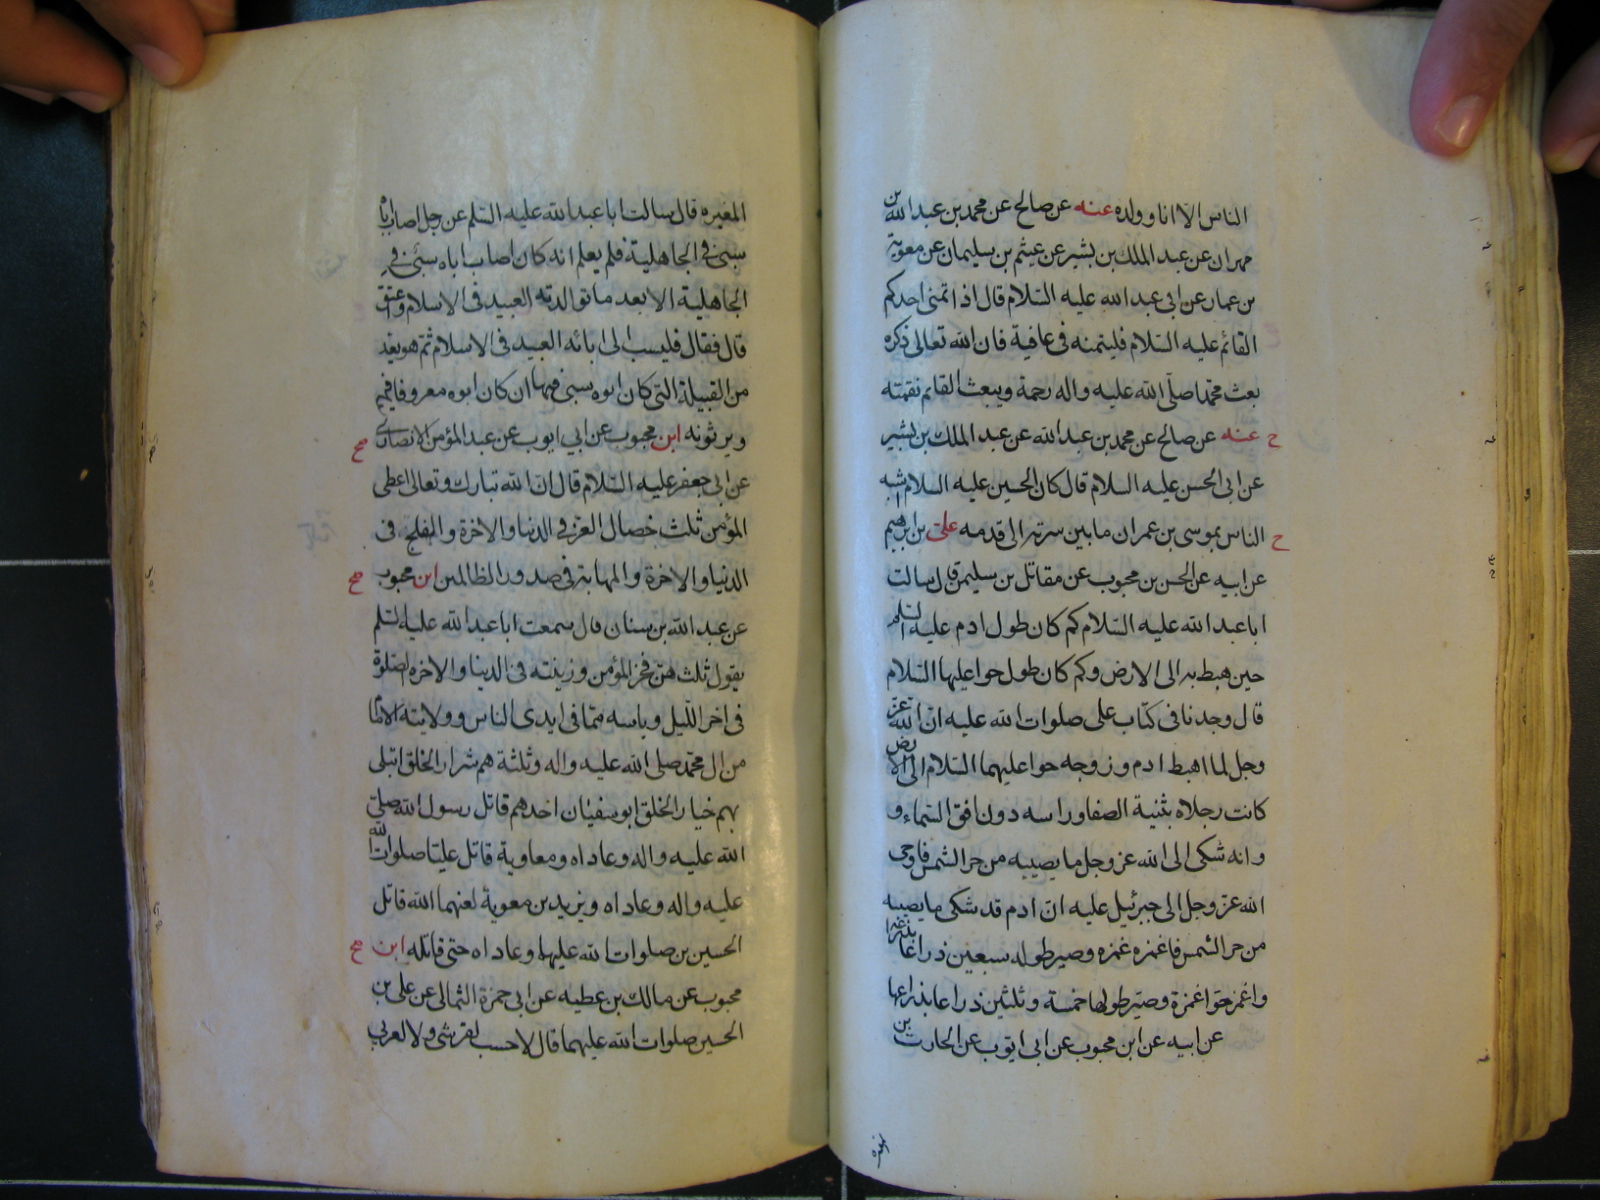 الناس الا انا وولده عنه عن صالح عن محمد بن عبد الله بن
مهران عن عبد الملك بن بشير عن عيثم بن سليمان عن معوية
بن عمار عن ابى عبد الله عليه السلام قال اذا تمنى احدكم
القائم عليه السلام فليتمنه فى عافية فان الله تعالى ذكره
بعث محمدا صلى الله عليه واله رحمة ويبعث القائم نقمته
ح عنه عن صالح عن محمد بن عبد الله عن عبد الملك بن بشير
عن ابى الحسن عليه السلام قال كان الحسين عليه السلام اشبه
ح الناس بموسى بن عمران ما بين سرته الى قدمه على بن ابرهيم
عن ابيه عن الحسن بن محبوب عن مقاتل بن سليمن قال سالت
ابا عبد الله عليه السلام كم كان طول ادم عليه السلم
حين هبط به الى الارض وكم كان طول حوا عليها السلام
قال وجدنا فى كتاب على صلوات الله عليه ان الله عز
وجل لما اهبط ادم وزوجه حوا عليهما السلام الى الارض
كانت رجلاه بثنية الصفا وراسه دون افق السماء و
وانه شكى الى الله عز وجل ما يصيبه من حر الشمس فاوحى
الله عز وجل الى جبرئيل عليه ان ادم قد شكى ما يصيبه
من حر الشمس فاغمزه غمزه وصير طوله سبعين ذراعا بذراعه
واغمز حوا غمزة وصير طولها خمسة وثلثين ذراعا بذراعها
عن ابيه عن ابن محبوب عن ابى ايوب عن الحارث بن
المغيره قال سالت ابا عبد الله عليه السلم عن رجل اصاب اباه
سبى فى الجاهلية فلم يعلم انه كان اصاب اباه سبى فى
الجاهلية الا بعد ما توالدته العبيد فى الاسلام وعتق
قال فقال فلينسب الى ابائه العبيد فى الاسلام ثم هو يعد
من القبيلة التى كان ابوه سبى فيها ان كان ابوه معروفا فيهم
ويرثونه ابن محبوب عن ابي ايوب عن عبد المؤمن الانصارى
عن ابى جعفر عليه السلام قال ان الله تبارك وتعالى اعطى
المؤمن ثلث خصال العز فى الدنيا والاخرة والفلج فى
الدنيا والاخرة والمهابة فى صدور الظالمين ابن محبوب
عن عبد الله بن سنان قال سمعت ابا عبد الله عليه السلم
يقول ثلث هن فخر المؤمن وزينته فى الدنيا والاخره الصلوة
فى اخر الليل وياسه مما فى ايدى الناس وولايته الامام
من ال محمد صلى الله عليه واله وثلثة هم شرار الخلق ابتلى
بهم خيار الخلق ابو سفيان احدهم قاتل رسول الله صلى
الله عليه واله وعاداه ومعاوية قاتل عليا صلوات الله
عليه واله وعاداه ويزيد بن معوية لعنهما الله قاتل
الحسين بن صلوات الله عليها وعاداه حتى قاتله ابن
محبوب عن مالك بن عطيه عن ابى حمزة الثمالى عن على بن
الحسين صلوات الله عليهما قال لا حسب لقرشى ولا لعربى